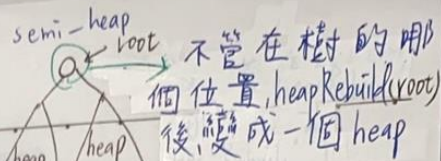 semi-heap
root
不管在樹的哪
個位置,heapRebuild(root)
後,變成一個heap
heap
heap